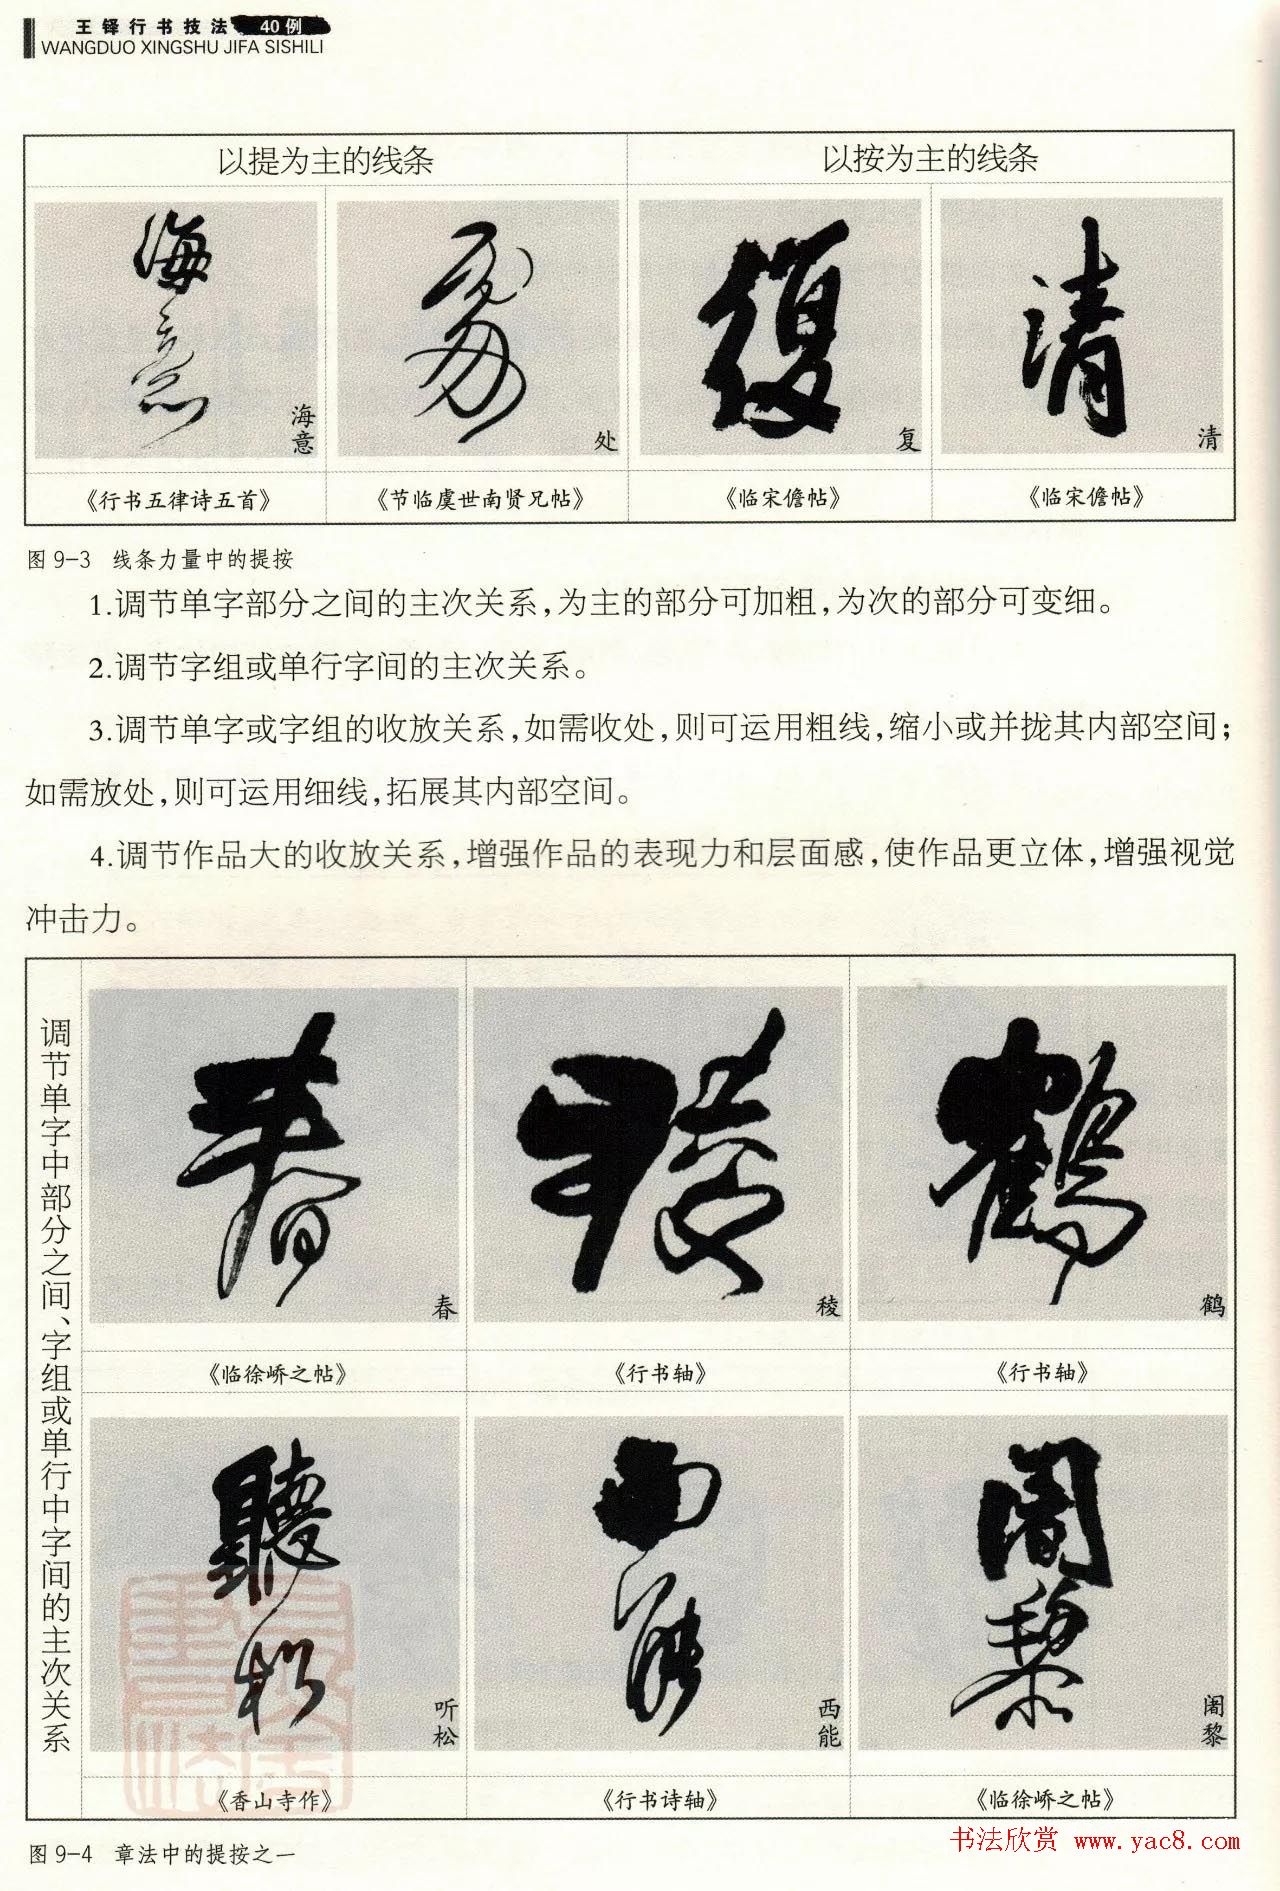 王铎行书技法 40例
WANGDUO XINGSHU JIFA SISHILI
以提为主的线条 以按为主的线条
海意 处 复 清
《行书五律诗五首》 《节临虞世南贤兄帖》 《临宋儋帖》 《临宋儋帖》
图 9-3 线条力量中的提按
1.调节单字部分之间的主次关系,为主的部分可加粗,为次的部分可变细。
2.调节字组或单行字间的主次关系。
3.调节单字或字组的收放关系,如需收处,则可运用粗线,缩小或并拢其内部空间;
如需放处,则可运用细线,拓展其内部空间。
4.调节作品大的收放关系,增强作品的表现力和层面感,使作品更立体,增强视觉
冲击力。
调节单字中部分之间、字组或单行中字间的主次关系
春 稜 鹤
《临徐峤之帖》 《行书轴》 《行书轴》
听松 西能 阇黎
《香山寺作》 《行书诗轴》 《临徐峤之帖》
图 9-4 章法中的提按之一
书法欣赏 www.yac8.com